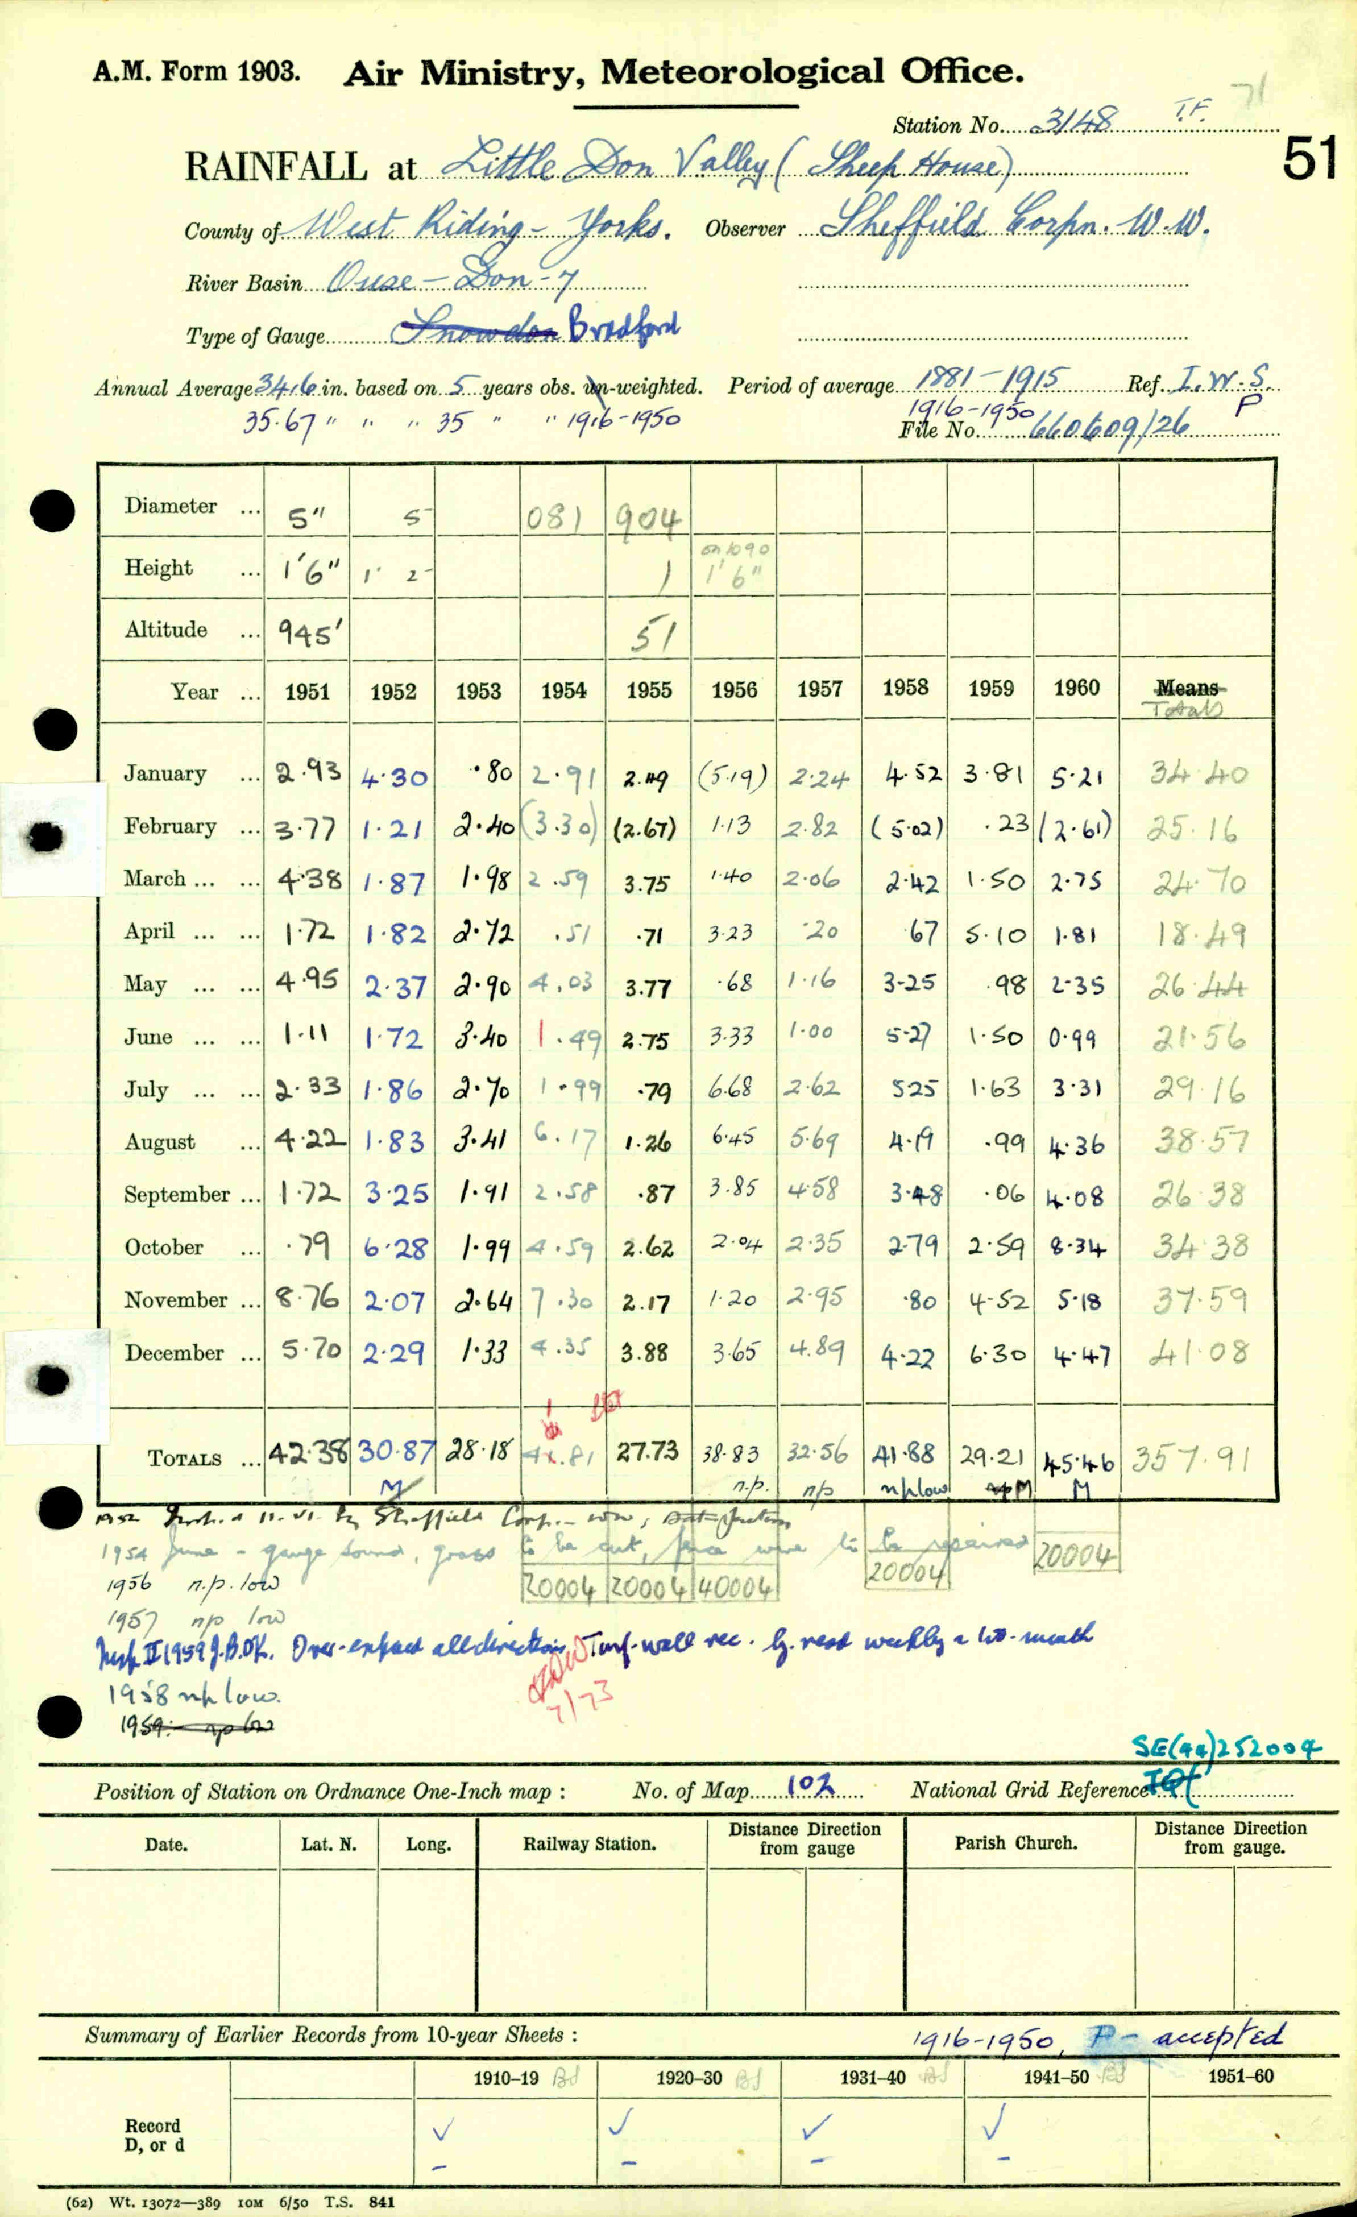 A.M. Form 1903. Air Ministry, Meteorological Office.
71
Station No. 3148 T.F.
51
RAINFALL at Little Don Valley (Sheep House)
County of West Riding - Yorks. Observer Sheffield Corpn. W.W.
River Basin Ouse - Don - 7
Type of Gauge Snowdon Bradford
Annual Average 34.6 in. based on 5 years obs. un-weighted. Period of average 1881-1915 Ref. I.W.S.
35.67 " " " 35 " " 1916-1950 1916-1950 P
File No. 660609/26
Diameter ... 5" 5 081 904
Height ... 1'6" 1' 2 1 on 1090 1'6"
Altitude ... 945' 51
Year ... 1951 1952 1953 1954 1955 1956 1957 1958 1959 1960 Means Totals
January ... 2.93 4.30 .80 2.91 2.49 (5.19) 2.24 4.52 3.81 5.21 34.40
February ... 3.77 1.21 2.40 (3.30) (2.67) 1.13 2.82 (5.02) .23 (2.61) 25.16
March ... ... 4.38 1.87 1.98 2.59 3.75 1.40 2.06 2.42 1.50 2.75 24.70
April ... ... 1.72 1.82 2.72 .51 .71 3.23 .20 67 5.10 1.81 18.49
May ... ... 4.95 2.37 2.90 4.03 3.77 .68 1.16 3.25 .98 2.35 26.44
June ... ... 1.11 1.72 3.40 1.49 2.75 3.33 1.00 5.27 1.50 0.99 21.56
July ... ... 2.33 1.86 2.70 1.99 .79 6.68 2.62 525 1.63 3.31 29.16
August ... 4.22 1.83 3.41 6.17 1.26 6.45 5.69 4.19 .99 4.36 38.57
September ... 1.72 3.25 1.91 2.58 .87 3.85 4.58 3.48 .06 4.08 26.38
October ... .79 6.28 1.99 4.59 2.62 2.04 2.35 2.79 2.59 8.34 34.38
November ... 8.76 2.07 2.64 7.30 2.17 1.20 2.95 .80 4.52 5.18 37.59
December ... 5.70 2.29 1.33 4.35 3.88 3.65 4.89 4.22 6.30 4.47 41.08
TOTALS ... 42.38 30.87 28.18 .81 27.73 38.83 32.56 41.88 29.21 45.46 357.91
M n.p. n/p n/p low M M
1952 11. VI. by Sheffield Corpn. WW, Satisfactory
1954 June - gauge sound, grass to be cut, fence wire to be repaired
20004 20004 40004 20004 20004
1956 n.p. low
1957 n/p low
Insp. II 1959 J.B. OK. Over-exposed all directions. Turf-wall rec. G. read weekly & 1st. month
1958 n/p low.
7/73
1959: n/p low
SE(44)252004
Position of Station on Ordnance One-Inch map : No. of Map 102 National Grid Reference
Date. Lat. N. Long. Railway Station. Distance from gauge Direction Parish Church. Distance from gauge. Direction
Summary of Earlier Records from 10-year Sheets : 1916-1950, P - accepted
1910–19 BJ 1920–30 BJ 1931–40 BJ 1941–50 BJ 1951–60
Record D, or d ✓ ✓ ✓ ✓
– – – –
(62) Wt. 13072—389 10M 6/50 T.S. 841